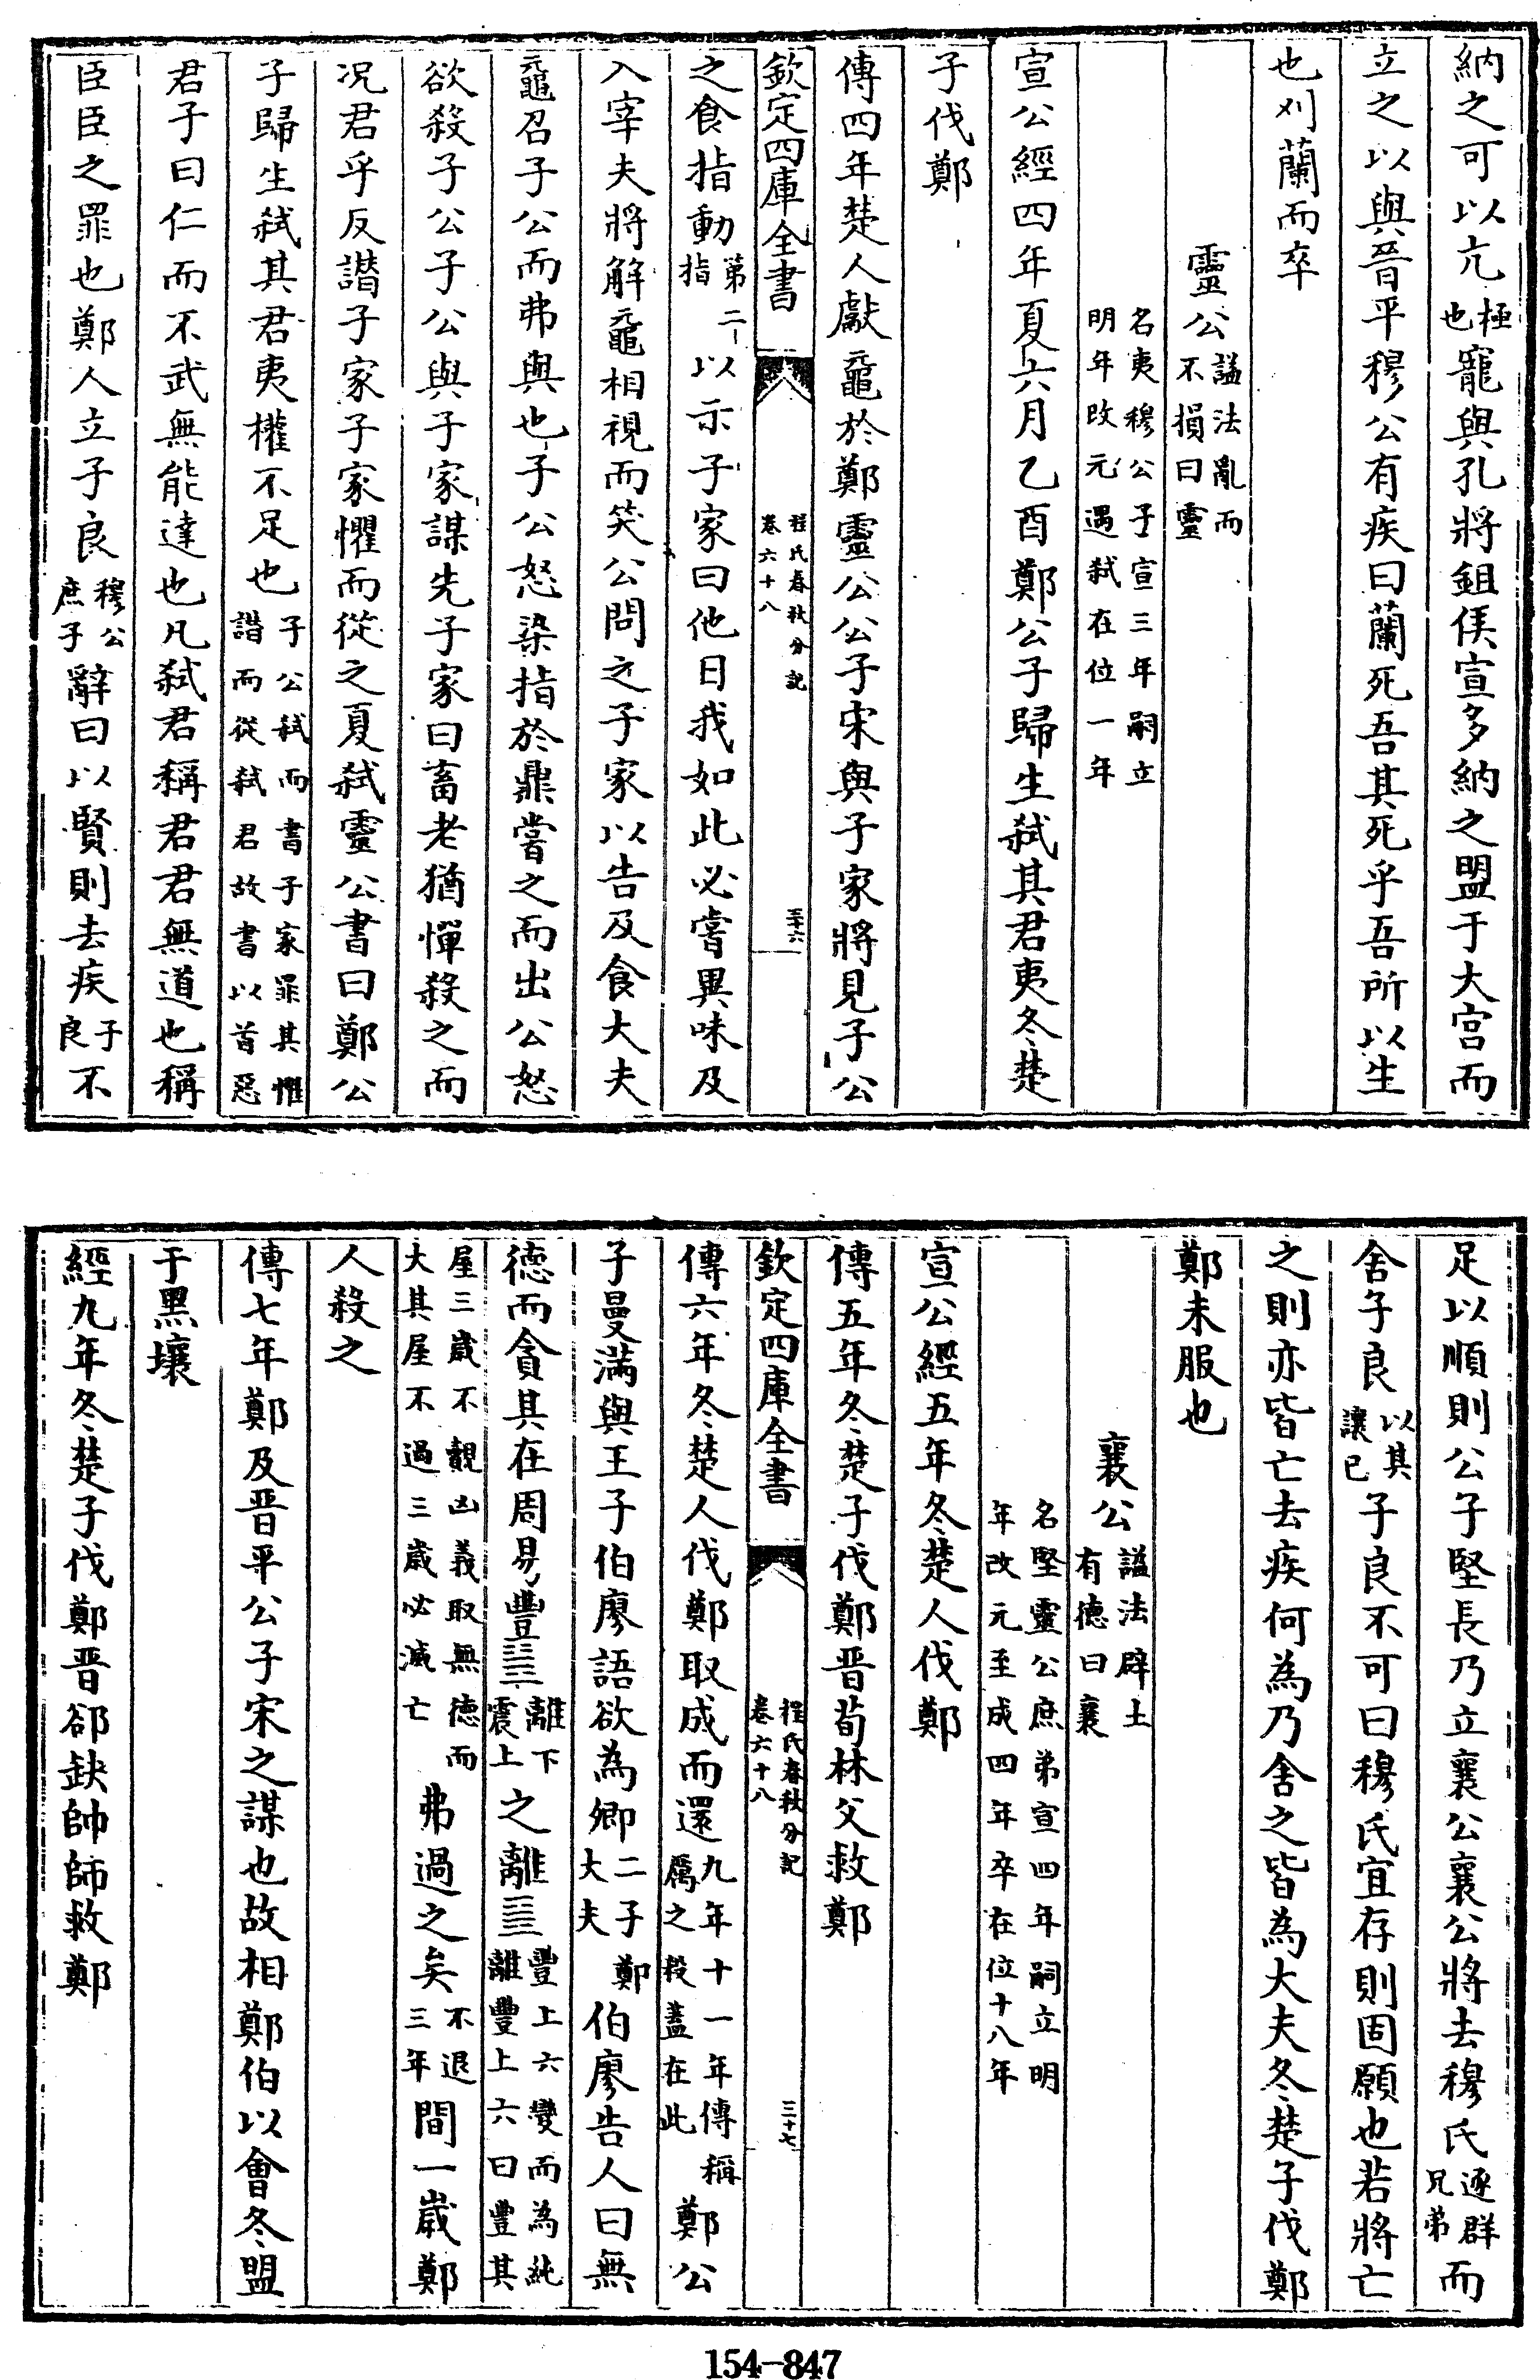 納之可以亢極也寵與孔將鉏侯宣多納之盟于大宫而
立之以與晉平穆公有疾曰蘭死吾其死乎吾所以生
也刈蘭而卒
靈公謚法亂而不損曰靈
名夷穆公子宣三年嗣立明年改元遇弑在位一年
宣公經四年夏六月乙酉鄭公子歸生弑其君夷冬楚
子伐鄭
傳四年楚人獻黿於鄭靈公公子宋與子家將見子公
欽定四庫全書 程氏春秋分記卷六十八 三十六
之食指動第二指以示子家曰他日我如此必嘗異味及
入宰夫將解黿相視而笑公問之子家以告及食大夫
黿召子公而弗與也子公怒染指於鼎嘗之而出公怒
欲殺子公子公與子家謀先子家曰畜老猶憚殺之而
况君乎反譖子家子家懼而從之夏弑靈公書曰鄭公
子歸生弑其君夷權不足也子公弑而書子家罪其懼譖而從弑君故書以首惡
君子曰仁而不武無能達也凡弑君稱君君無道也稱
臣臣之罪也鄭人立子良穆公庶子辭曰以賢則去疾子良不
足以順則公子堅長乃立襄公襄公將去穆氏逐群兄弟而
舍子良以其讓己子良不可曰穆氏宜存則固願也若將亡
之則亦皆亡去疾何為乃舍之皆為大夫冬楚子伐鄭
鄭未服也
襄公謚法辟土有德曰襄
名堅靈公庶弟宣四年嗣立明年改元至成四年卒在位十八年
宣公經五年冬楚人伐鄭
傳五年冬楚子伐鄭晋荀林父救鄭
欽定四庫全書 程氏春秋分記卷六十八 三十七
傳六年冬楚人伐鄭取成而還九年十一年傳稱厲之役蓋在此鄭公
子曼滿與王子伯廖語欲為卿二子鄭大夫伯廖告人曰無
德而貪其在周易豐䷶離下震上之離䷝豐上六變而為純離豐上六曰豐其
屋三歲不覿凶義取無德而大其屋不過三歲必滅亡弗過之矣不退三年間一歲鄭
人殺之
傳七年鄭及晋平公子宋之謀也故相鄭伯以會冬盟
于黑壤
經九年冬楚子伐鄭晋郤缺帥師救鄭
154-847